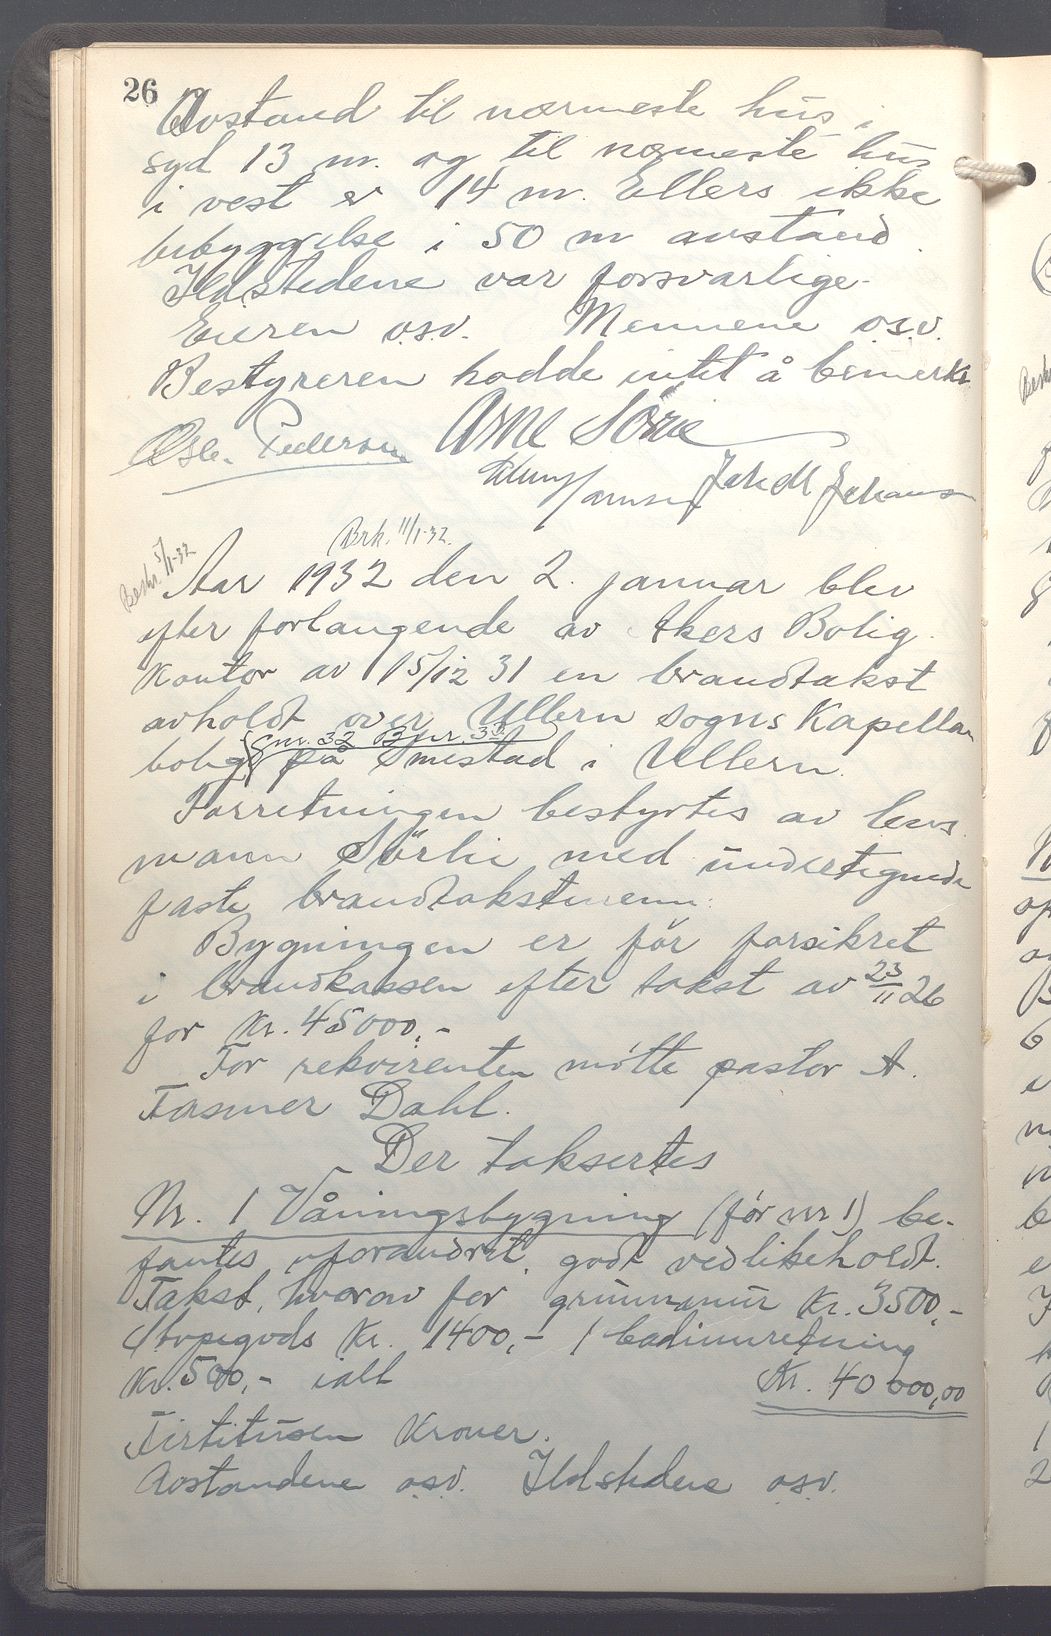 26
Avstand til nærmeste hus i
syd 13 m. og til nærmeste hus
i vest er 14 m. Ellers ikke
bebyggelse i 50 m avstand.
Ildstedene var forsvarlige.
Eieren osv. Mennene osv.
Bestyreren hadde intet å bemerke
Arne Sörlie
Pedersen
Jakob Johansen
Brh. 11/1-32.
Beskr. 5/1-32
Aar 1932 den 2. januar blev
efter forlangende av Akers Bolig
kontor av 15/12 31 en brandtakst
avholdt over Ullern sogns Kapellan
gnr. 32 Bnr.
bolig på Smestad i Ullern.
Forretningen bestyrtes av lens
mann Sörlie med undertegnede
faste brandtakstmenn.
Bygningen er för forsikret
i brandkassen efter takst av 23/11 26
for Kr. 45000,-
For rekvirenten mötte pastor A.
Fasmer Dahl.
Der taksertes
Nr. 1 Våningsbygning (för nr 1) be-
fantes uforandret, godt vedlikeholdt.
Takst, hvorav for grunnmur Kr. 3500,-
Kr. 1400,- 1 badinnretning
Kr. 500,- ialt Kr. 40000,00
Firtitusen Kroner.
Avstandene osv. Ildstedene osv.